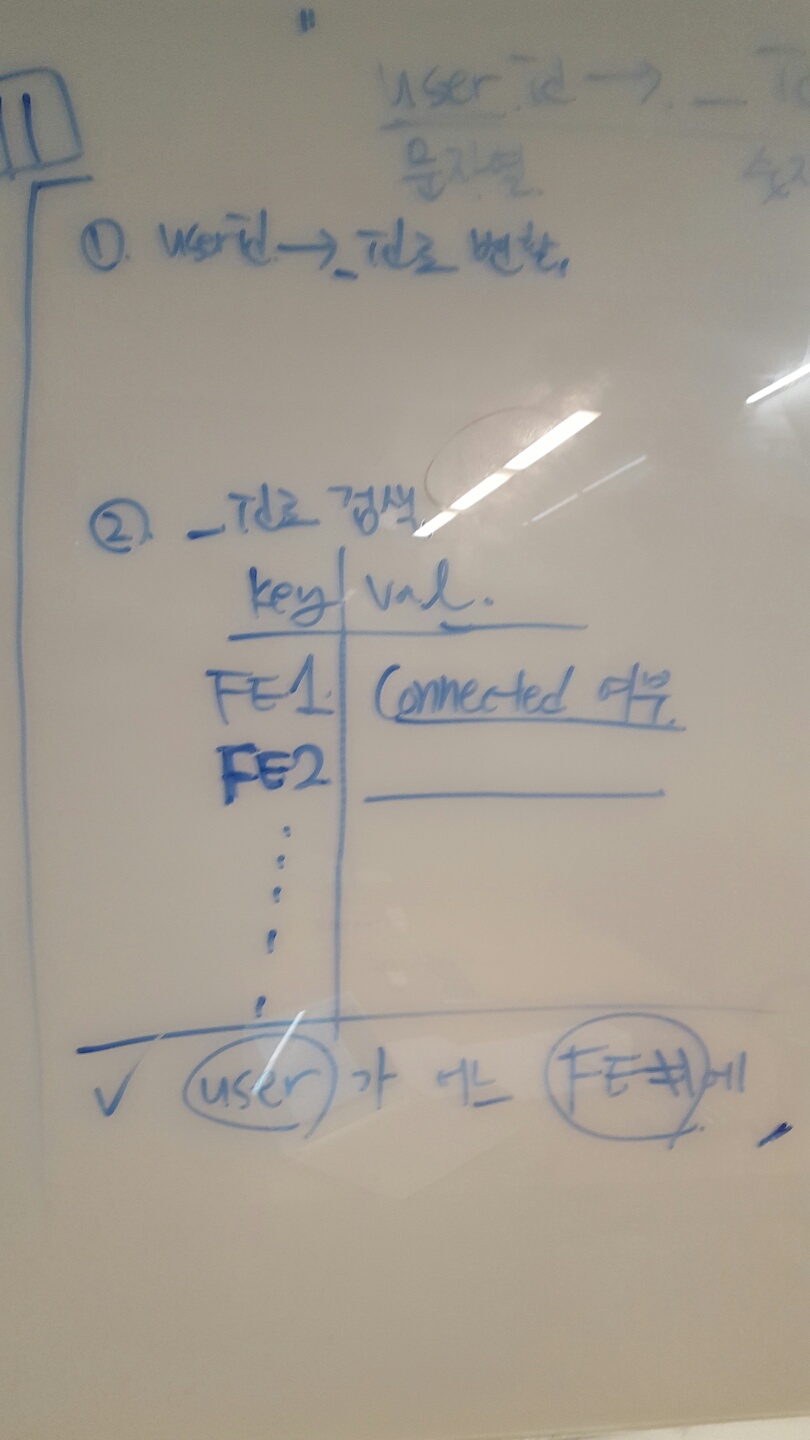 user id → _ id
문자열 숫자
① userid → _id로 변환.
② _id로 검색
key val.
FE1 Connected 여부
FE2
✓ user가 어느 FE에